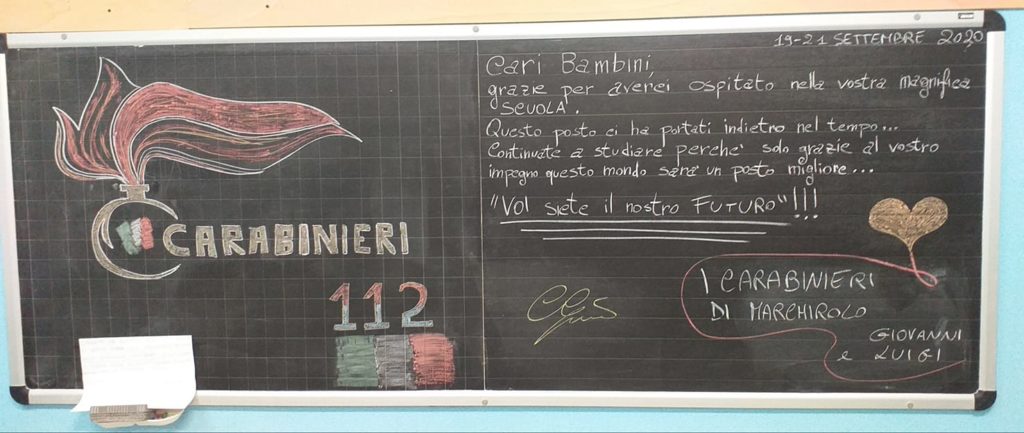 CARABINIERI
112
19-21 SETTEMBRE 2020
Cari Bambini,
grazie per averci ospitato nella vostra magnifica
SCUOLA.
Questo posto ci ha portati indietro nel tempo...
Continuate a studiare perche' solo grazie al vostro
impegno questo mondo sarà un posto migliore...
"VOI siete il nostro FUTURO"!!!
I CARABINIERI
DI MARCHIROLO
GIOVANNI
e LUIGI